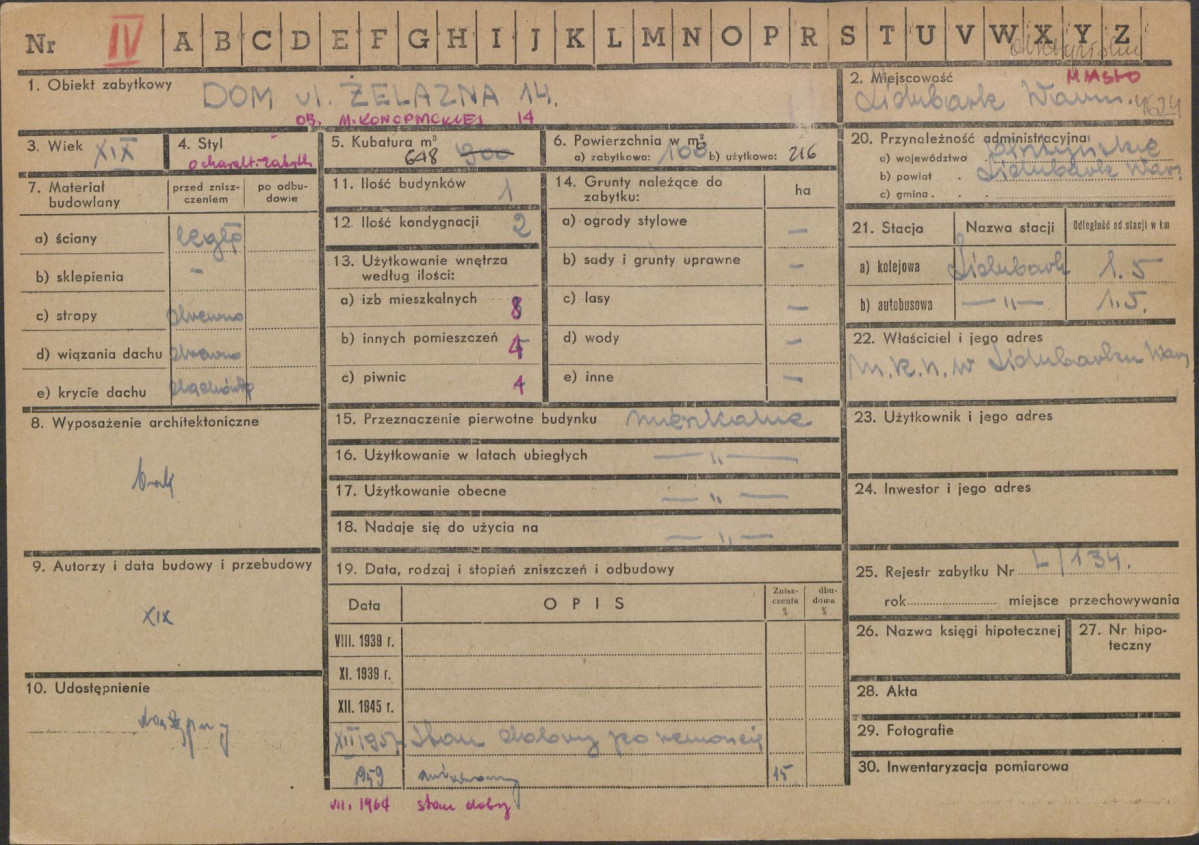 Nr IV A B C D E F G H I J K L M N O P R S T U V W X Y Z
1. Obiekt zabytkowy DOM ul. ŻELAZNA 14.
OB. M. KONOPNICKIEJ 14
2. Miejscowość MIASTO
Lidzbark Warm.
3. Wiek XIX
4. Styl
o charakt. zabytk
5. Kubatura m³
648 900
6. Powierzchnia w m²
a) zabytkowa: 108 b) użytkowa: 216
7. Materiał budowlany
przed zniszczeniem
po odbudowie
a) ściany cegła
b) sklepienia -
c) stropy drewno
d) wiązania dachu drewno
e) krycie dachu dachówka
8. Wyposażenie architektoniczne
brak
9. Autorzy i data budowy i przebudowy
XIX
10. Udostępnienie
dostępny
11. Ilość budynków 1
12. Ilość kondygnacji 2
13. Użytkowanie wnętrza
według ilości:
a) izb mieszkalnych 8
b) innych pomieszczeń 4
c) piwnic 4
14. Grunty należące do
zabytku:
ha
a) ogrody stylowe —
b) sady i grunty uprawne —
c) lasy —
d) wody —
e) inne —
15. Przeznaczenie pierwotne budynku mieszkalne
16. Użytkowanie w latach ubiegłych — „ —
17. Użytkowanie obecne — „ —
18. Nadaje się do użycia na — „ —
19. Data, rodzaj i stopień zniszczeń i odbudowy
Data
OPIS
Zniszczenia %
dbudowa %
VIII. 1939 r.
XI. 1939 r.
XII. 1945 r.
XII 1957 Stan dobry po remoncie
1959 15
VII. 1964 stan dobry
20. Przynależność administracyjna
a) województwa olsztyńskie
b) powiat . Lidzbark Warm.
c) gmina . .
21. Stacja
Nazwa stacji
Odległość od stacji w km
a) kolejowa Lidzbark 1.5
b) autobusowa — „ — 1.5.
22. Właściciel i jego adres
M.R.N. w Lidzbarku Warm
23. Użytkownik i jego adres
24. Inwestor i jego adres
25. Rejestr zabytku Nr L/134.
rok miejsce przechowywania
26. Nazwa księgi hipotecznej
27. Nr hipoteczny
28. Akta
29. Fotografie
30. Inwentaryzacja pomiarowa